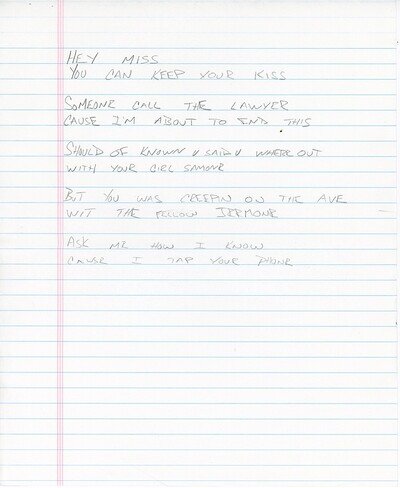 HEY MISS
YOU CAN KEEP YOUR KISS
SOMEONE CALL THE LAWYER
CAUSE I'M ABOUT TO END THIS
SHOULD OF KNOWN U SAID U WHERE OUT
WITH YOUR GIRL SAMONE
BUT YOU WAS CREEPIN ON THE AVE
WIT THE FELLOW JERMONE
ASK ME HOW I KNOW
CAUSE I TAP YOUR PHONE